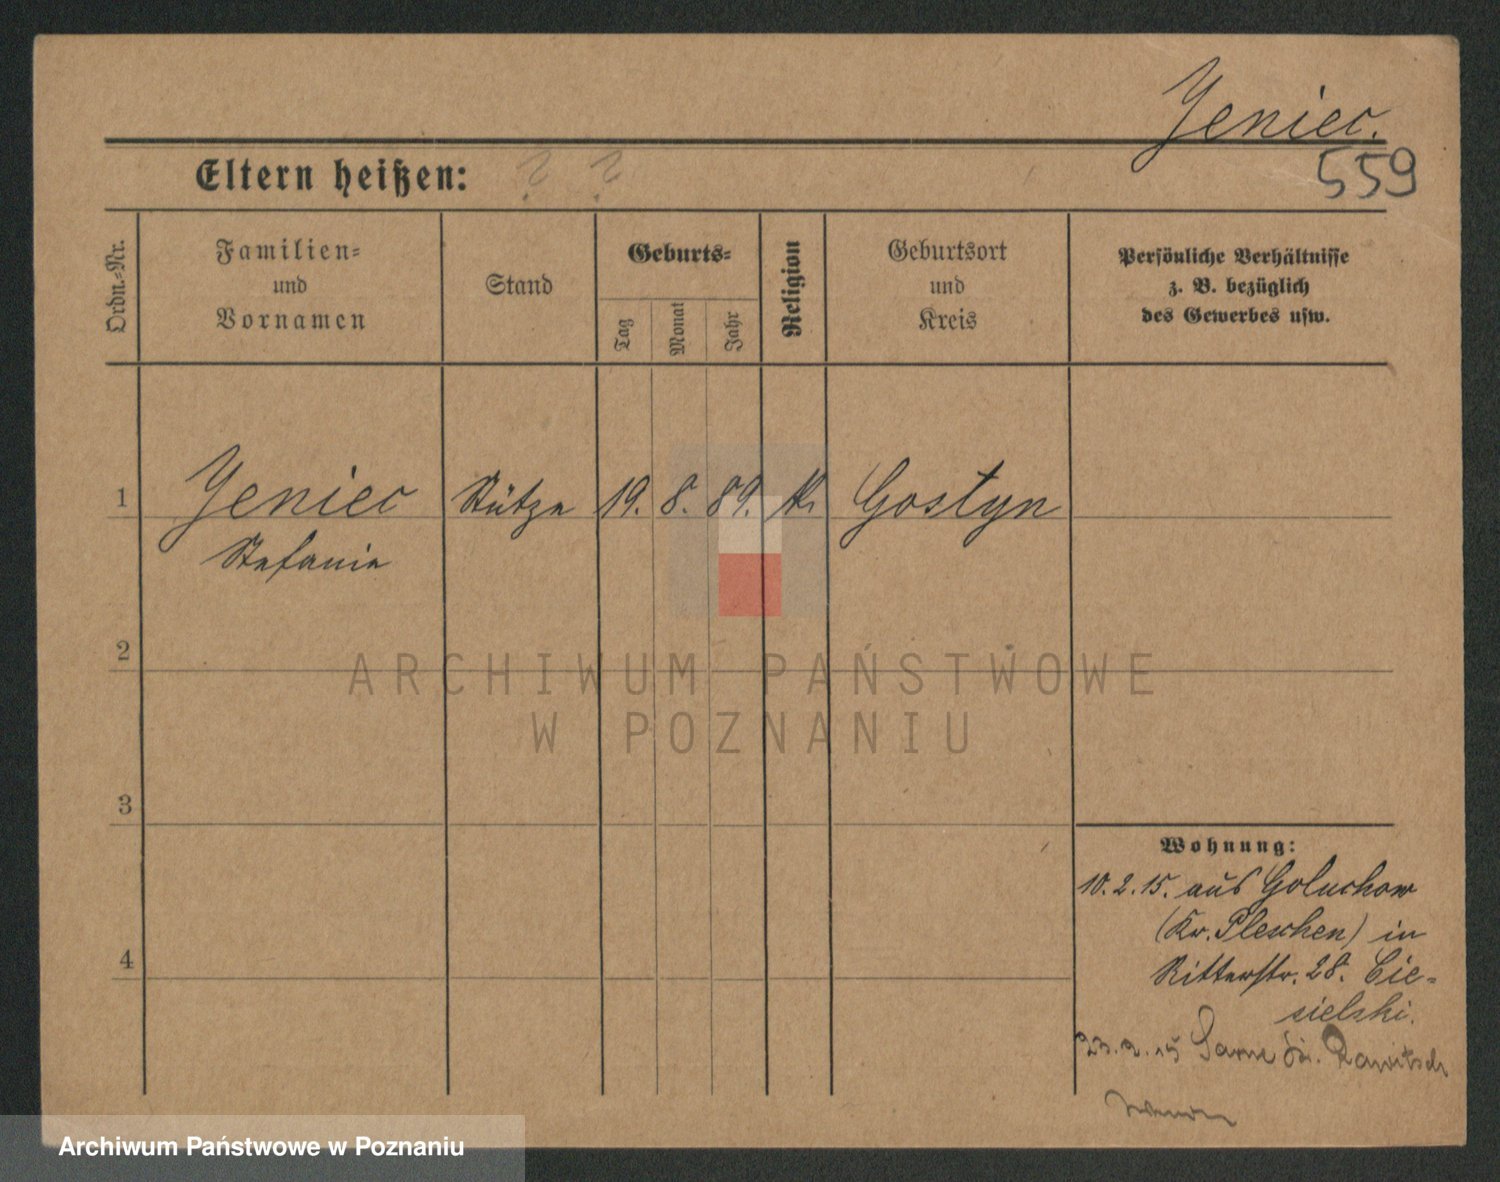 Jeniec.
559
Eltern heißen: ? ?
Ordn.-Nr.
Familien-
und
Vornamen
Stand
Geburts-
Tag
Monat
Jahr
Religion
Geburtsort
und
Kreis
Persönliche Verhältnisse
z. B. bezüglich
des Gewerbes usw.
1 Jeniec Stütze 19. 8. 89. k. Gostyn
Stefanie
2
3
4
ARCHIWUM PAŃSTWOWE
W POZNANIU
Wohnung:
10.2.15. aus Goluchow
(Kr. Pleschen) in
Ritterstr. 28. Cie-
sielski.
23.2.15 Sarne Rawitsch
Archiwum Państwowe w Poznaniu